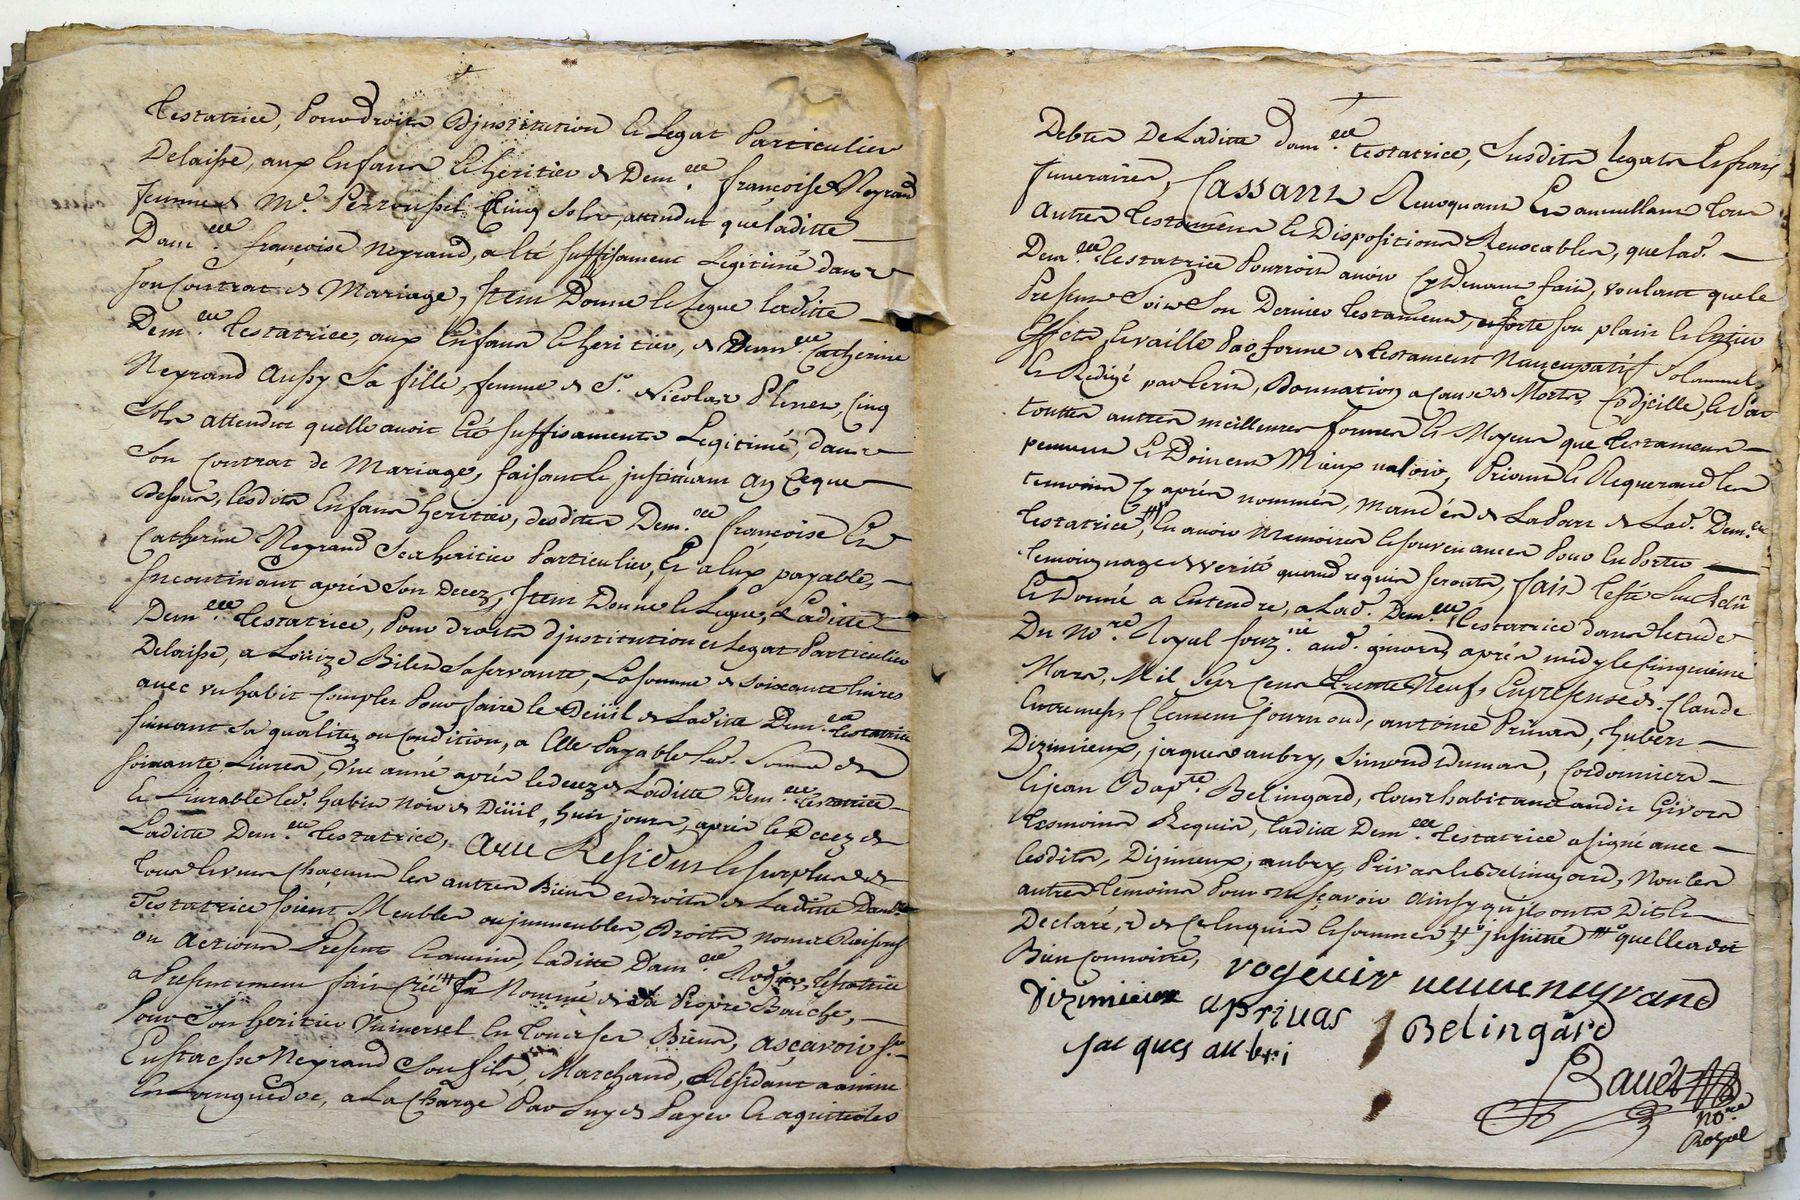 testatrice, Pour droits Djnstitution Et Legat Particulier
Delaisse, aux Enfans Et heritier de Dem.elle françoise Neyrand
femme de Mr. Perroussel Cinq Sols, attendut que laditte
Dam.elle françoise neyrand, a Eté suffisament Legitimé dans
son Contrat de Mariage, Jtem Donne Et Legue laditte
Dem.elle testatrice, aux Enfans Et heritier, de Dem.elle Catherine
Neyrand Aussy Sa fille, femme de Sr. Nicolas Cinq
Sols attendut quelle avoit Eté suffisamente Legitimé, dans
Son Contrat de Mariage, faisant Et justituant an Ceque
Dessus, lesdits Enfans heritier, desdittes Dem.elle françoise Et
Catherine Neyrand Ses heritier Particulier, Et a lux payable,
Jncontinant aprés Son Decez, Jtem Donne Et Legue, Laditte
Dem.elle testatrice, Pour droits djnstitution et Legat Particulier
Delaisse, a Loüize Servante, La somme de soixante livres
avec vn habit Complet Pour faire le Deüil de Laditte Dem.elle testatrice
suivant Sa qualitez ou Condition, a Elle Payable lad. Somme de
soixante Livres, Vne anné aprés le decez de Laditte Dem.elle testatrice
Et Livrable led. habit Noir de Deüil, huit jours aprés le Decez de
Laditte Dem.elle testatrice, Au Residus Et surplus de
tous Et vns Chacuns les autres Biens endroits de Laditte Dam.elle
Testatrice soient Meubles ou jmmeubles, Droits, noms Raisons
ou actions Present Et avenir, laditte Dam.elle testatrice
a Presentement fait Créé # Et Nommé de sa Propre Bouche,
Pour Son heritier Vniversel En tous ses Biens, ascavoir Sr.
Eustache Neyrand Son fils, Marchand, Residant a
En Languedoc, a La Charge Par Luy de Payer Et aquitter les
Debtes De Laditte Dam.elle testatrice, Susdits legats Et frais
funeraires, Cassant Revoquant Et annullant tous
autres testaments Et Dispositions Revocables, que lad.
Dem.elle testatrice Pourroit avoir Cy Devant fait, voulant que le
Present Soit Son Dernier testament, et sorte son plain Et Entier
Effets, Et vaille Par forme de testament Nuncupatif Solamnel
Et Redigé par Ecrit, Donnation a Cause de Morts, Codjcille, Et Par
touttes autres meilleures formes Et Moyens que testamens
peuvent Et Doivent Mieux valoir, Priant Et Requerand les
temoins Cy aprés nommés, mandés de La Part de Lad. Dem.elle
testatrice, # En avoir Memoires Et souvenances Pour En Porter
temoignage de verité quand requis seronts, fait Leste
Et Donné a Entendre, a Lad. Dem.elle testatrice dans Letude
Du No.re Royal souz.né aud. givors, aprés midy le Cinquieme
Mars, Mil Sept Cens trente Neuf, En Presense de Claude
Entremess, Clement journoud, antoine Privas, hubert
Dizimieux, jaques aubry, Simond dumas, Cordonniers
Et jean Bap.te Belingard, tous habitants audit Givors
tesmoins Requis, laditte Dem.elle testatrice a signé avec
lesdits, Dizimieux, aubry, Privas Et Belingard, Non les
autres temoins Pour ne sçavoir Ainsy quils onts Dit Et
Declaré, de Ce Enquis Et sommes, # jnstitué ## quelle a dit
Bien Connoitre,
vogenir neuve neyrand
Dizimieux aprivas Belingard
jacques aubri
Bauet
No.re
Royal